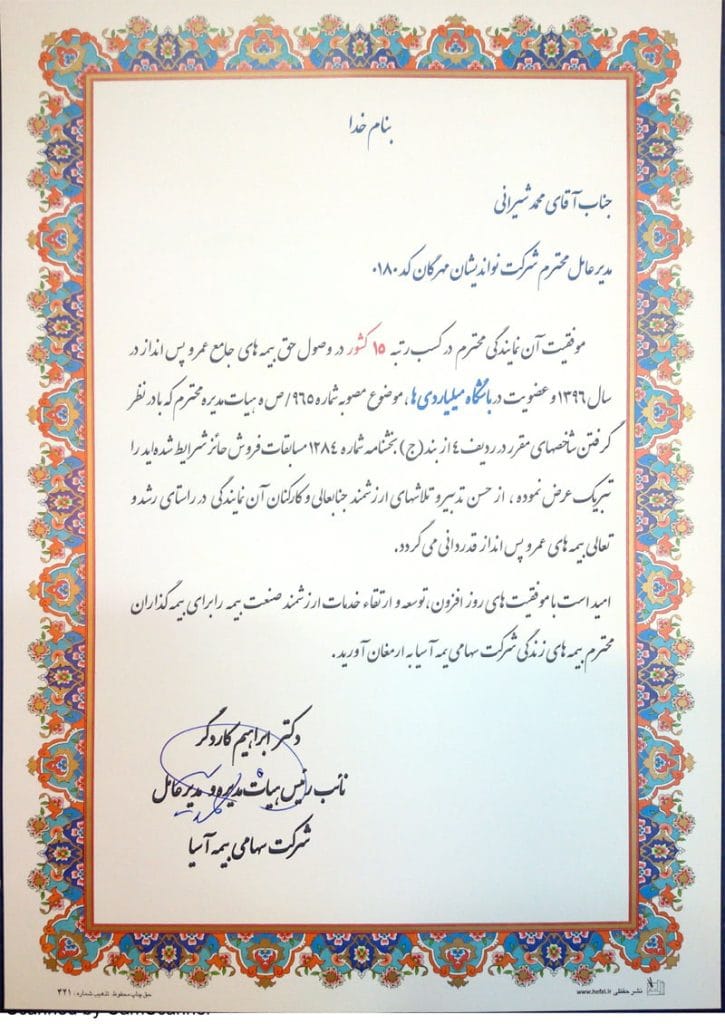 بنام خدا
جناب آقای محمد شیرانی
مدیر عامل محترم شرکت نواندیشان مهرگان کد ۰۱۸۰
موفقیت آن نمایندگی محترم در کسب رتبه ۱۵ کشور در وصول حق بیمه های جامع عمر و پس انداز در
سال ۱۳۹۶ و عضویت در باشگاه میلیاردی ها، موضوع مصوبه شماره ۹۶۵/ص ه هیات مدیره محترم که با در نظر
گرفتن شاخصهای مقرر در ردیف ۴ از بند (ج) بخشنامه شماره ۱۲۸۴ مسابقات فروش حائز شرایط شده اید را
تبریک عرض نموده ، از حسن تدبیر و تلاشهای ارزشمند جنابعالی و کارکنان آن نمایندگی در راستای رشد و
تعالی بیمه های عمر و پس انداز قدردانی می گردد.
امید است با موفقیت های روز افزون، توسعه و ارتقاء خدمات ارزشمند صنعت بیمه را برای بیمه گذاران
محترم بیمه های زندگی شرکت سهامی بیمه آسیا به ارمغان آورید.
دکتر ابراهیم کاردگر
نائب رئیس هیات مدیره و مدیر عامل
شرکت سهامی بیمه آسیا
نشر حفظی www.hefzi.ir
حق چاپ محفوظ. تذهیب شماره: ۴۴۱
Scanned by CamScanner